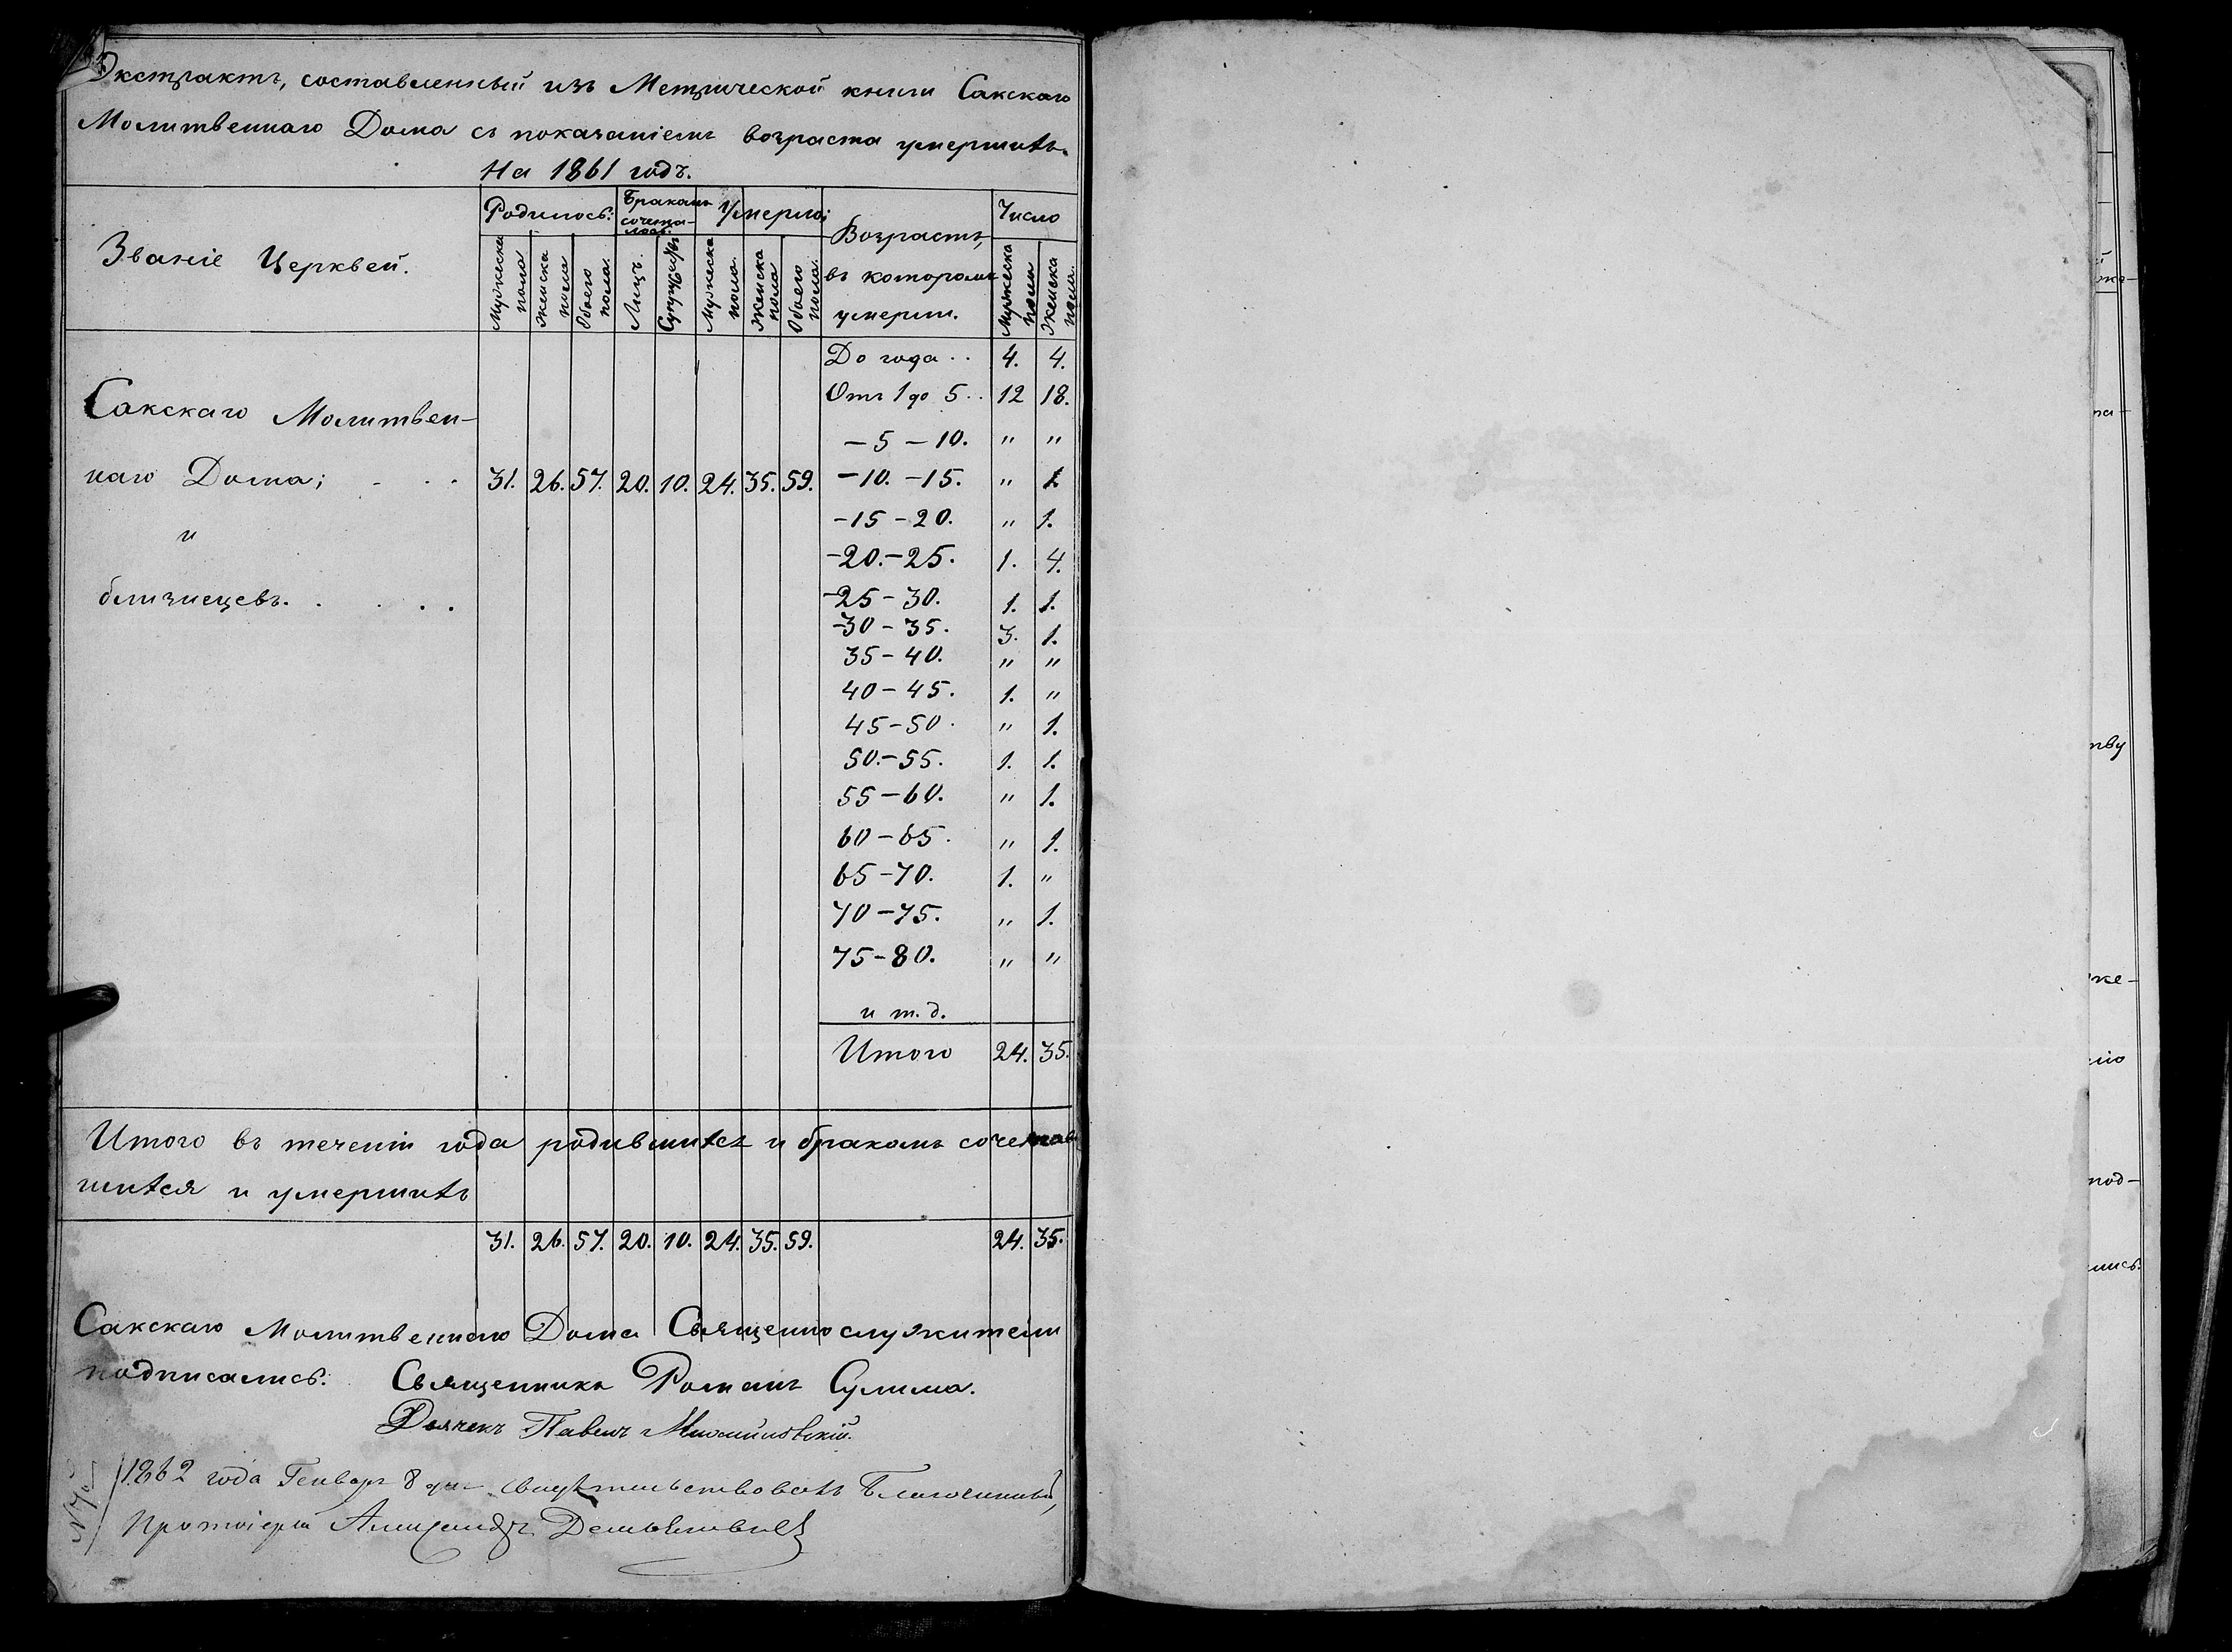 Экстрактъ, составленный изъ Метрической книги Сакскаго
Молитвеннаго Дома съ показаніемъ возраста умершихъ.
На 1861 годъ.
Званіе Церквей.
Родилось:
Бракомъ сочета-
лось:
Умерло:
Возрастъ,
въ которомъ
умерли.
Число
Мужеска пола
Женска пола
Обоего пола.
Лицъ.
Супружествъ
Мужеска пола.
Женска пола
Обоего пола.
Мужеска пола
Женска пола.
Сакскаго Молитвен-
наго Дома; - . . 31. 26. 57. 20. 10. 24. 35. 59.
и
близнецевъ. . . . .
До года . . 4. 4.
Отъ 1 до 5 . . 12 18.
– 5 – 10. " "
– 10. – 15. " 1
– 15 – 20. " 1.
– 20. – 25. 1. 4.
– 25 – 30. 1. 1.
– 30 – 35. 3. 1.
35 – 40. " "
40 – 45. 1. "
45 – 50. " 1.
50. – 55. 1. 1.
55 – 60. " 1.
60 – 65. " 1.
65 – 70. 1. "
70 – 75. " 1.
75 – 80. " "
и т. д.
Итого 24. 35.
Итого въ теченіи года родившихся и бракомъ сочетав
шихся и умершихъ
31. 26. 57. 20. 10. 24. 35. 59. 24. 35.
Сакскаго Молитвеннаго Дома Священнослужители
подписались: Священникъ Романъ Сулима.
Дьячекъ Павелъ
1862 года Генваря 8 дня свидѣтельствовалъ Благочинный,
Протоіерей Александръ